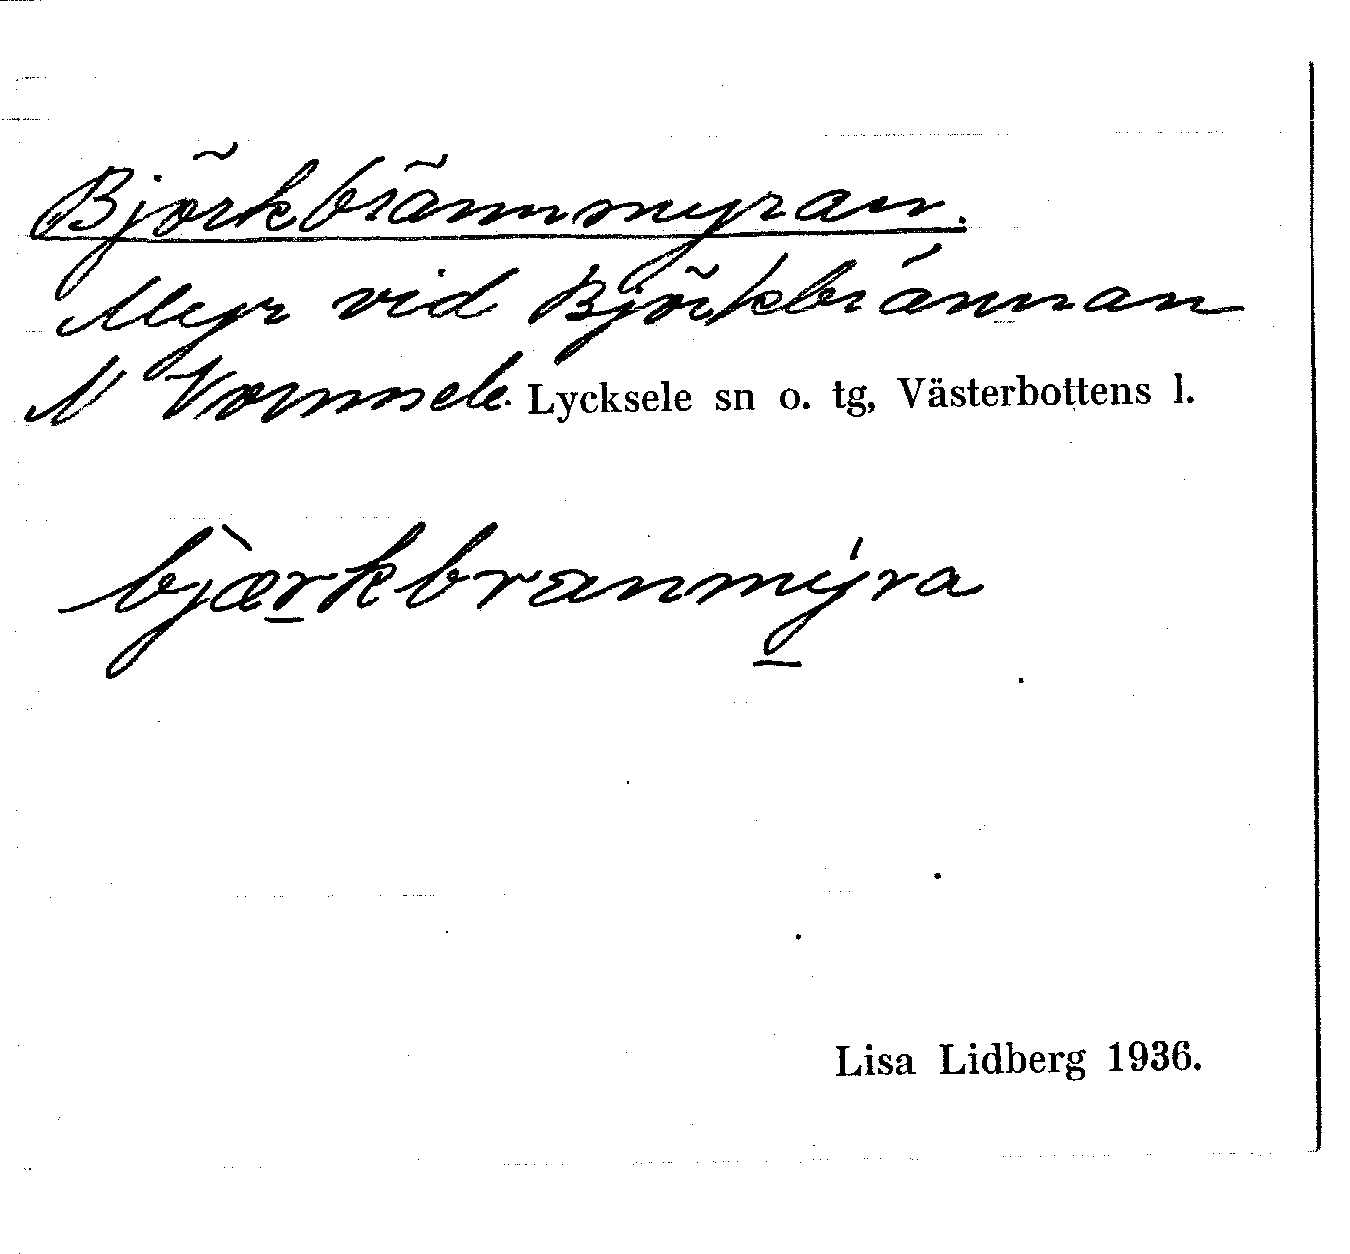 Björkbrännmyran.
Myr vid Björkbrännan
N Vormsele. Lycksele sn o. tg, Västerbottens l.
bjærkbranmýra
Lisa Lidberg 1936.